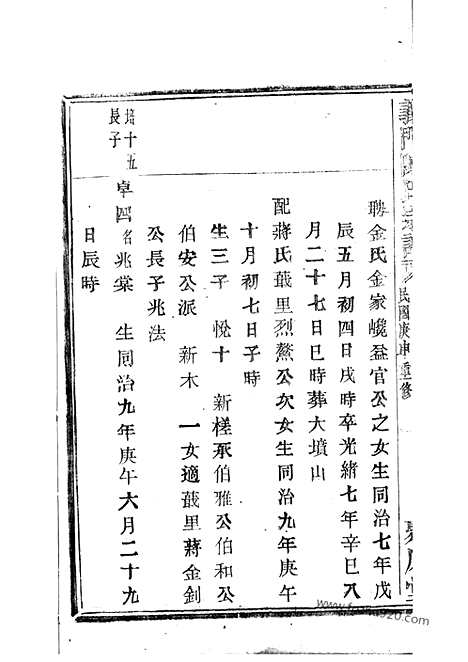 民國庚申重修
聘金氏金家巉益官公之女生同治七年戊
辰五月初四日戌時卒光緒七年辛巳八
月二十七日巳時葬大墳山
配蔣氏蕺里烈鰲公次女生同治九年庚午
十月初七日子時
生三子 悅十 新槎承伯雅公伯和公
伯安公派 新木 一女適蕺里蔣金釗
公長子兆法
培十五
長子
卓四名兆棠 生同治九年庚午六月二十九
日辰時